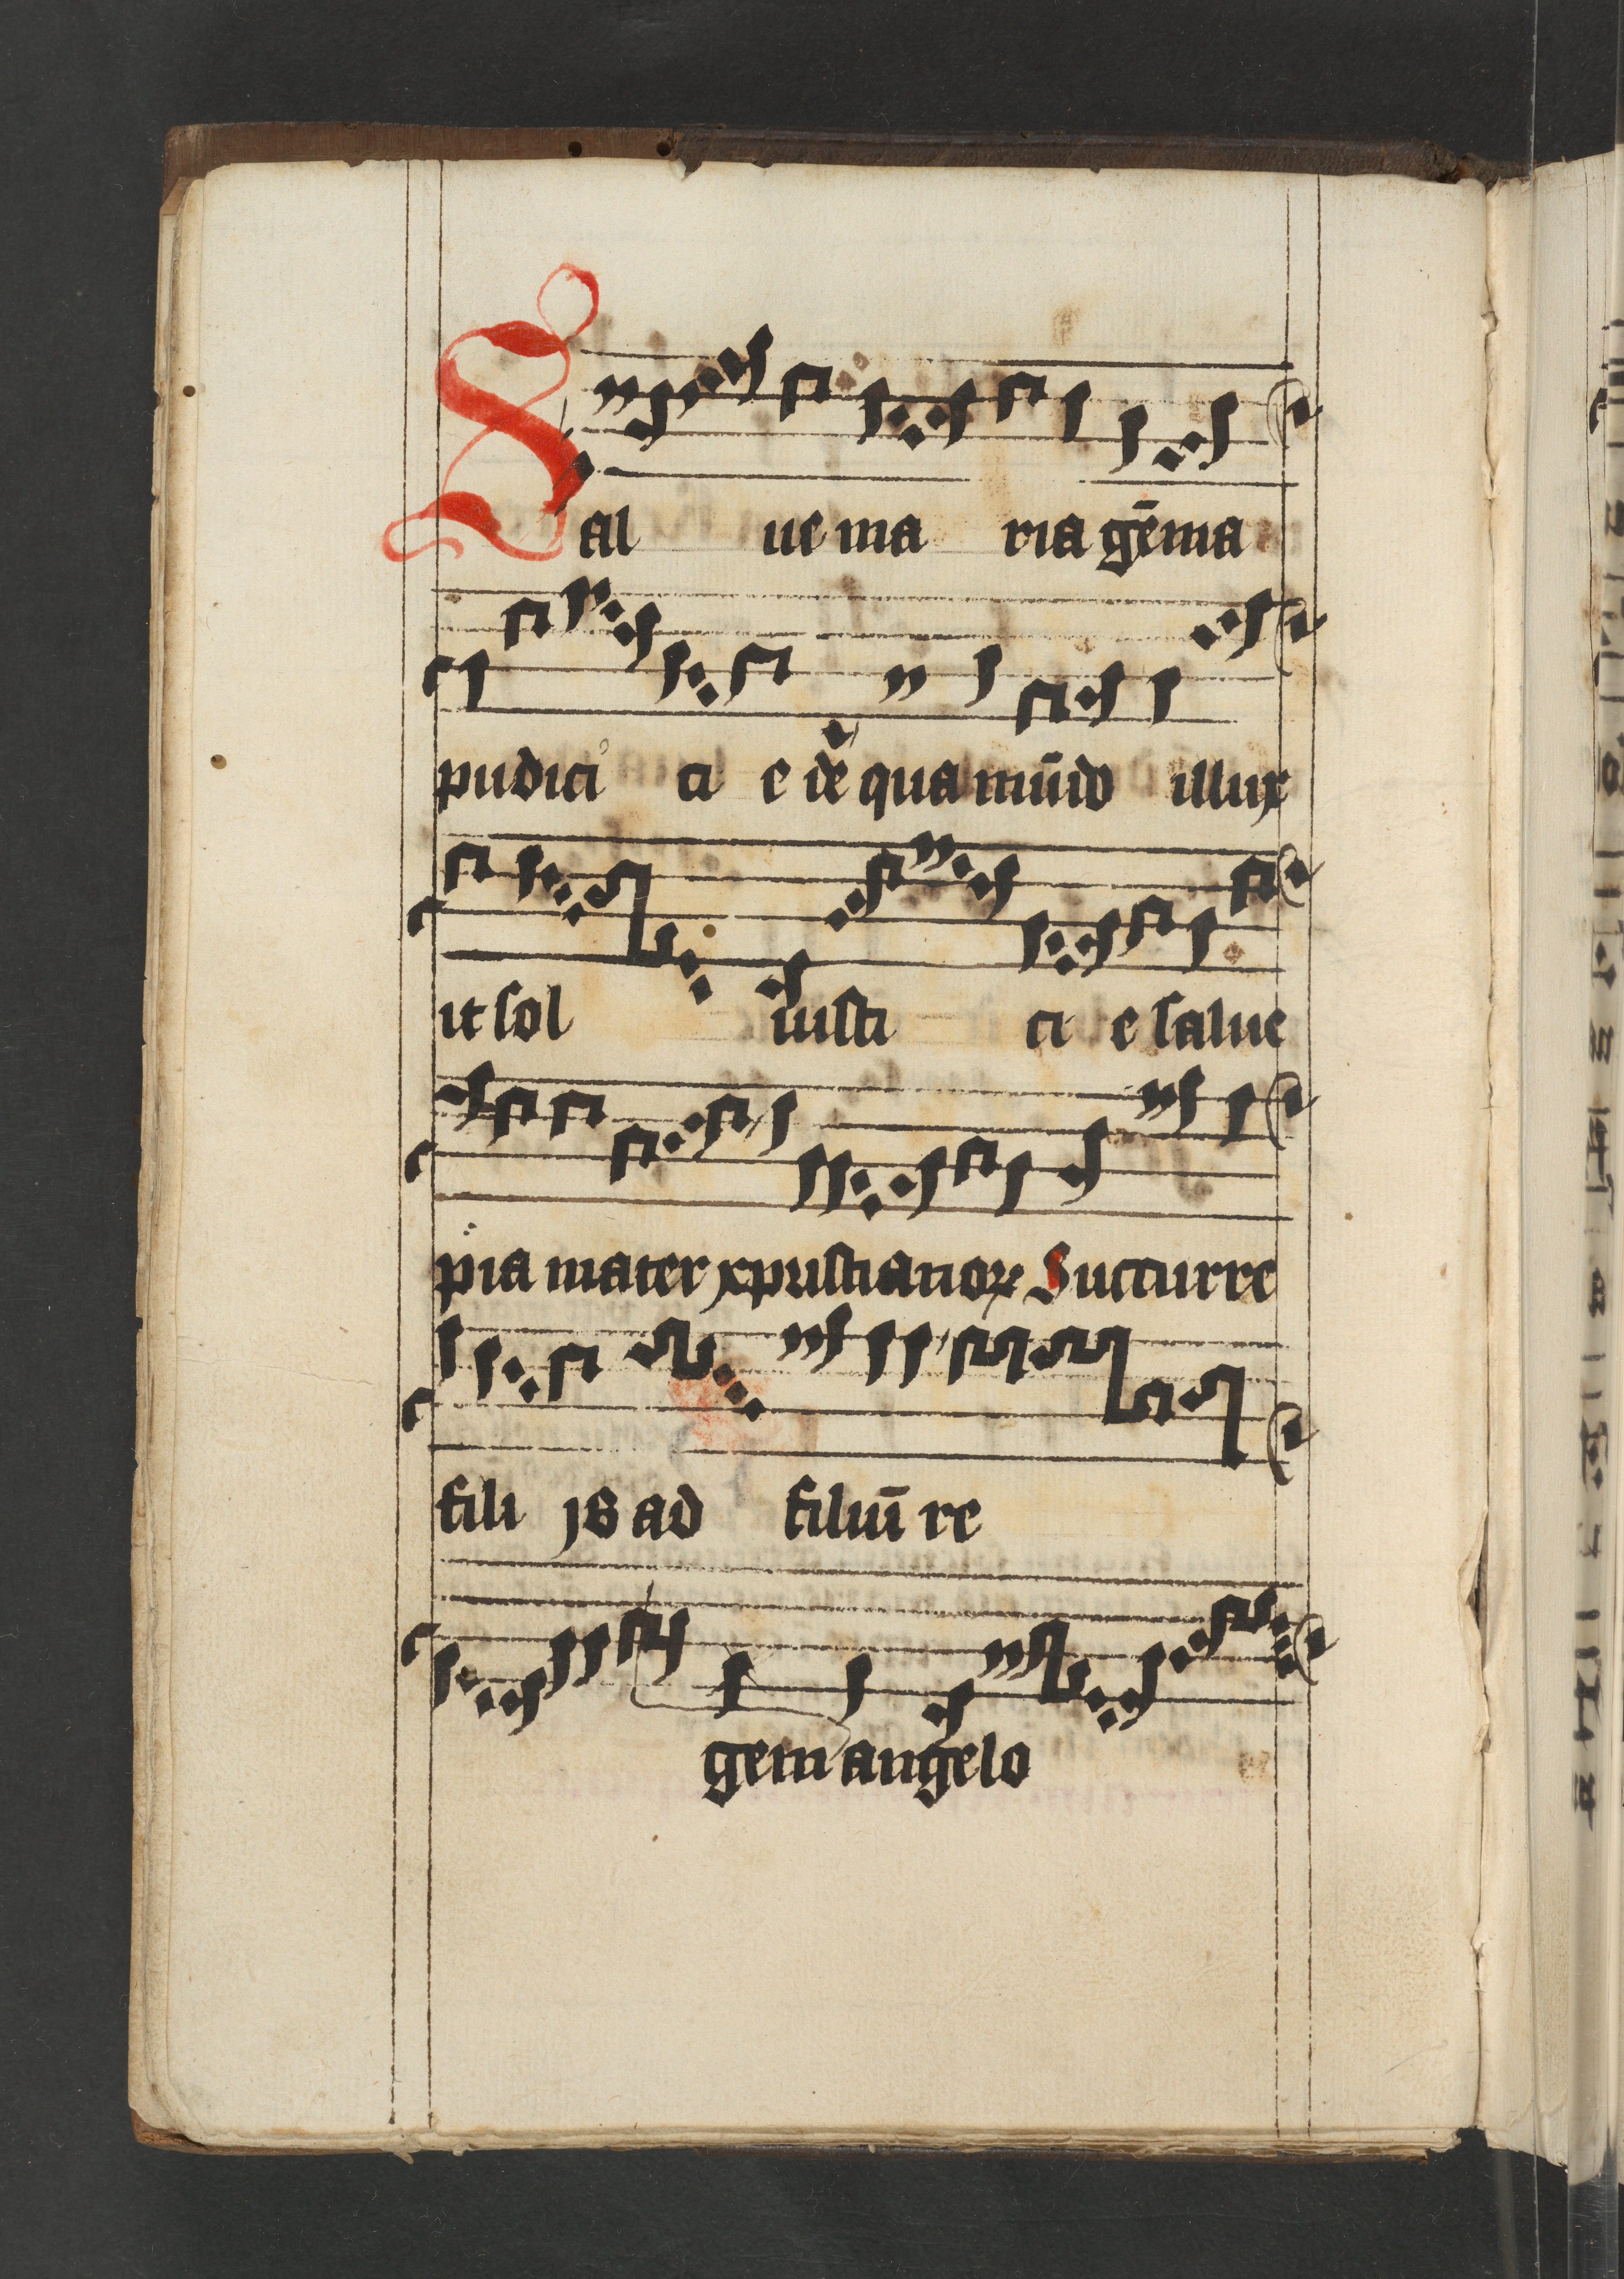 Sal ue ma ria gēma
pudici ci e de qua mūdo illux
it sol iusti ci e salue
pia mater xpristianoꝝ Succurre
fili js ad filiū re
gem angelo